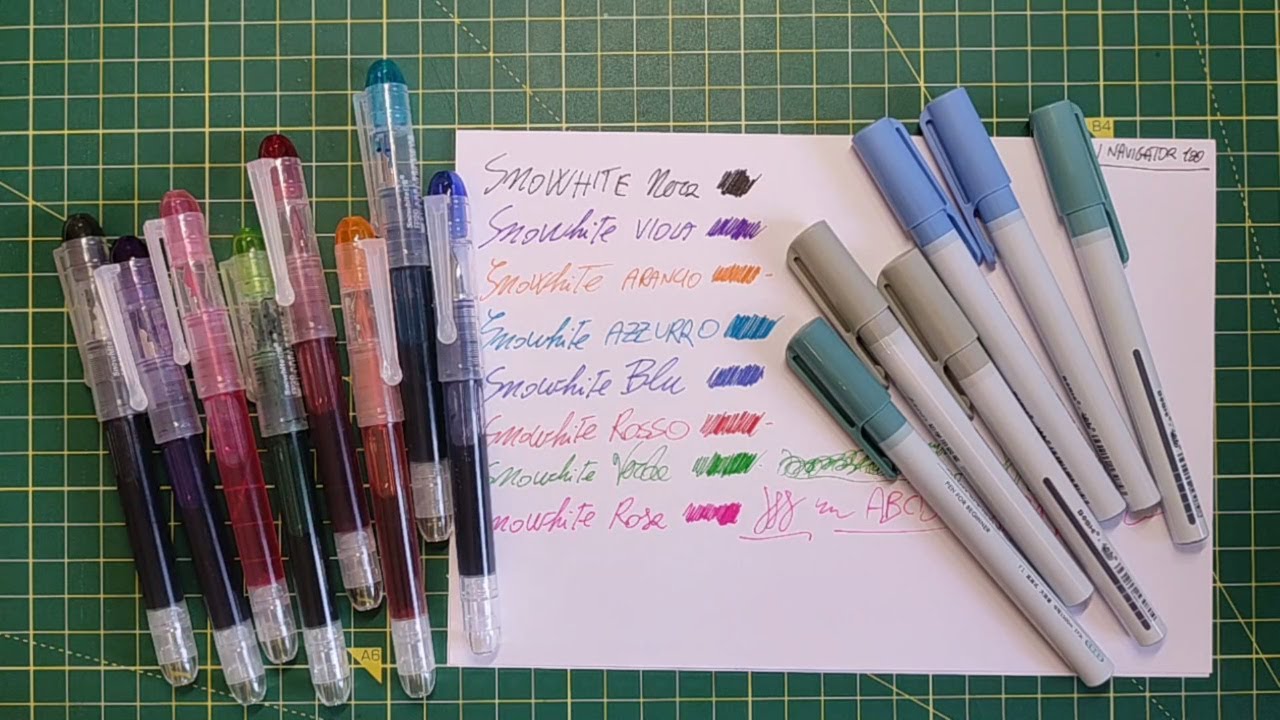 B4
NAVIGATOR 120
SNOWHITE Nera
Snowhite VIOLA
Snowhite ARANCIO
Snowhite AZZURRO
Snowhite Blu
Snowhite ROSSO
Snowhite Verde
nowhite Rosa
ABCD
PEN FOR BEGINNER
A6